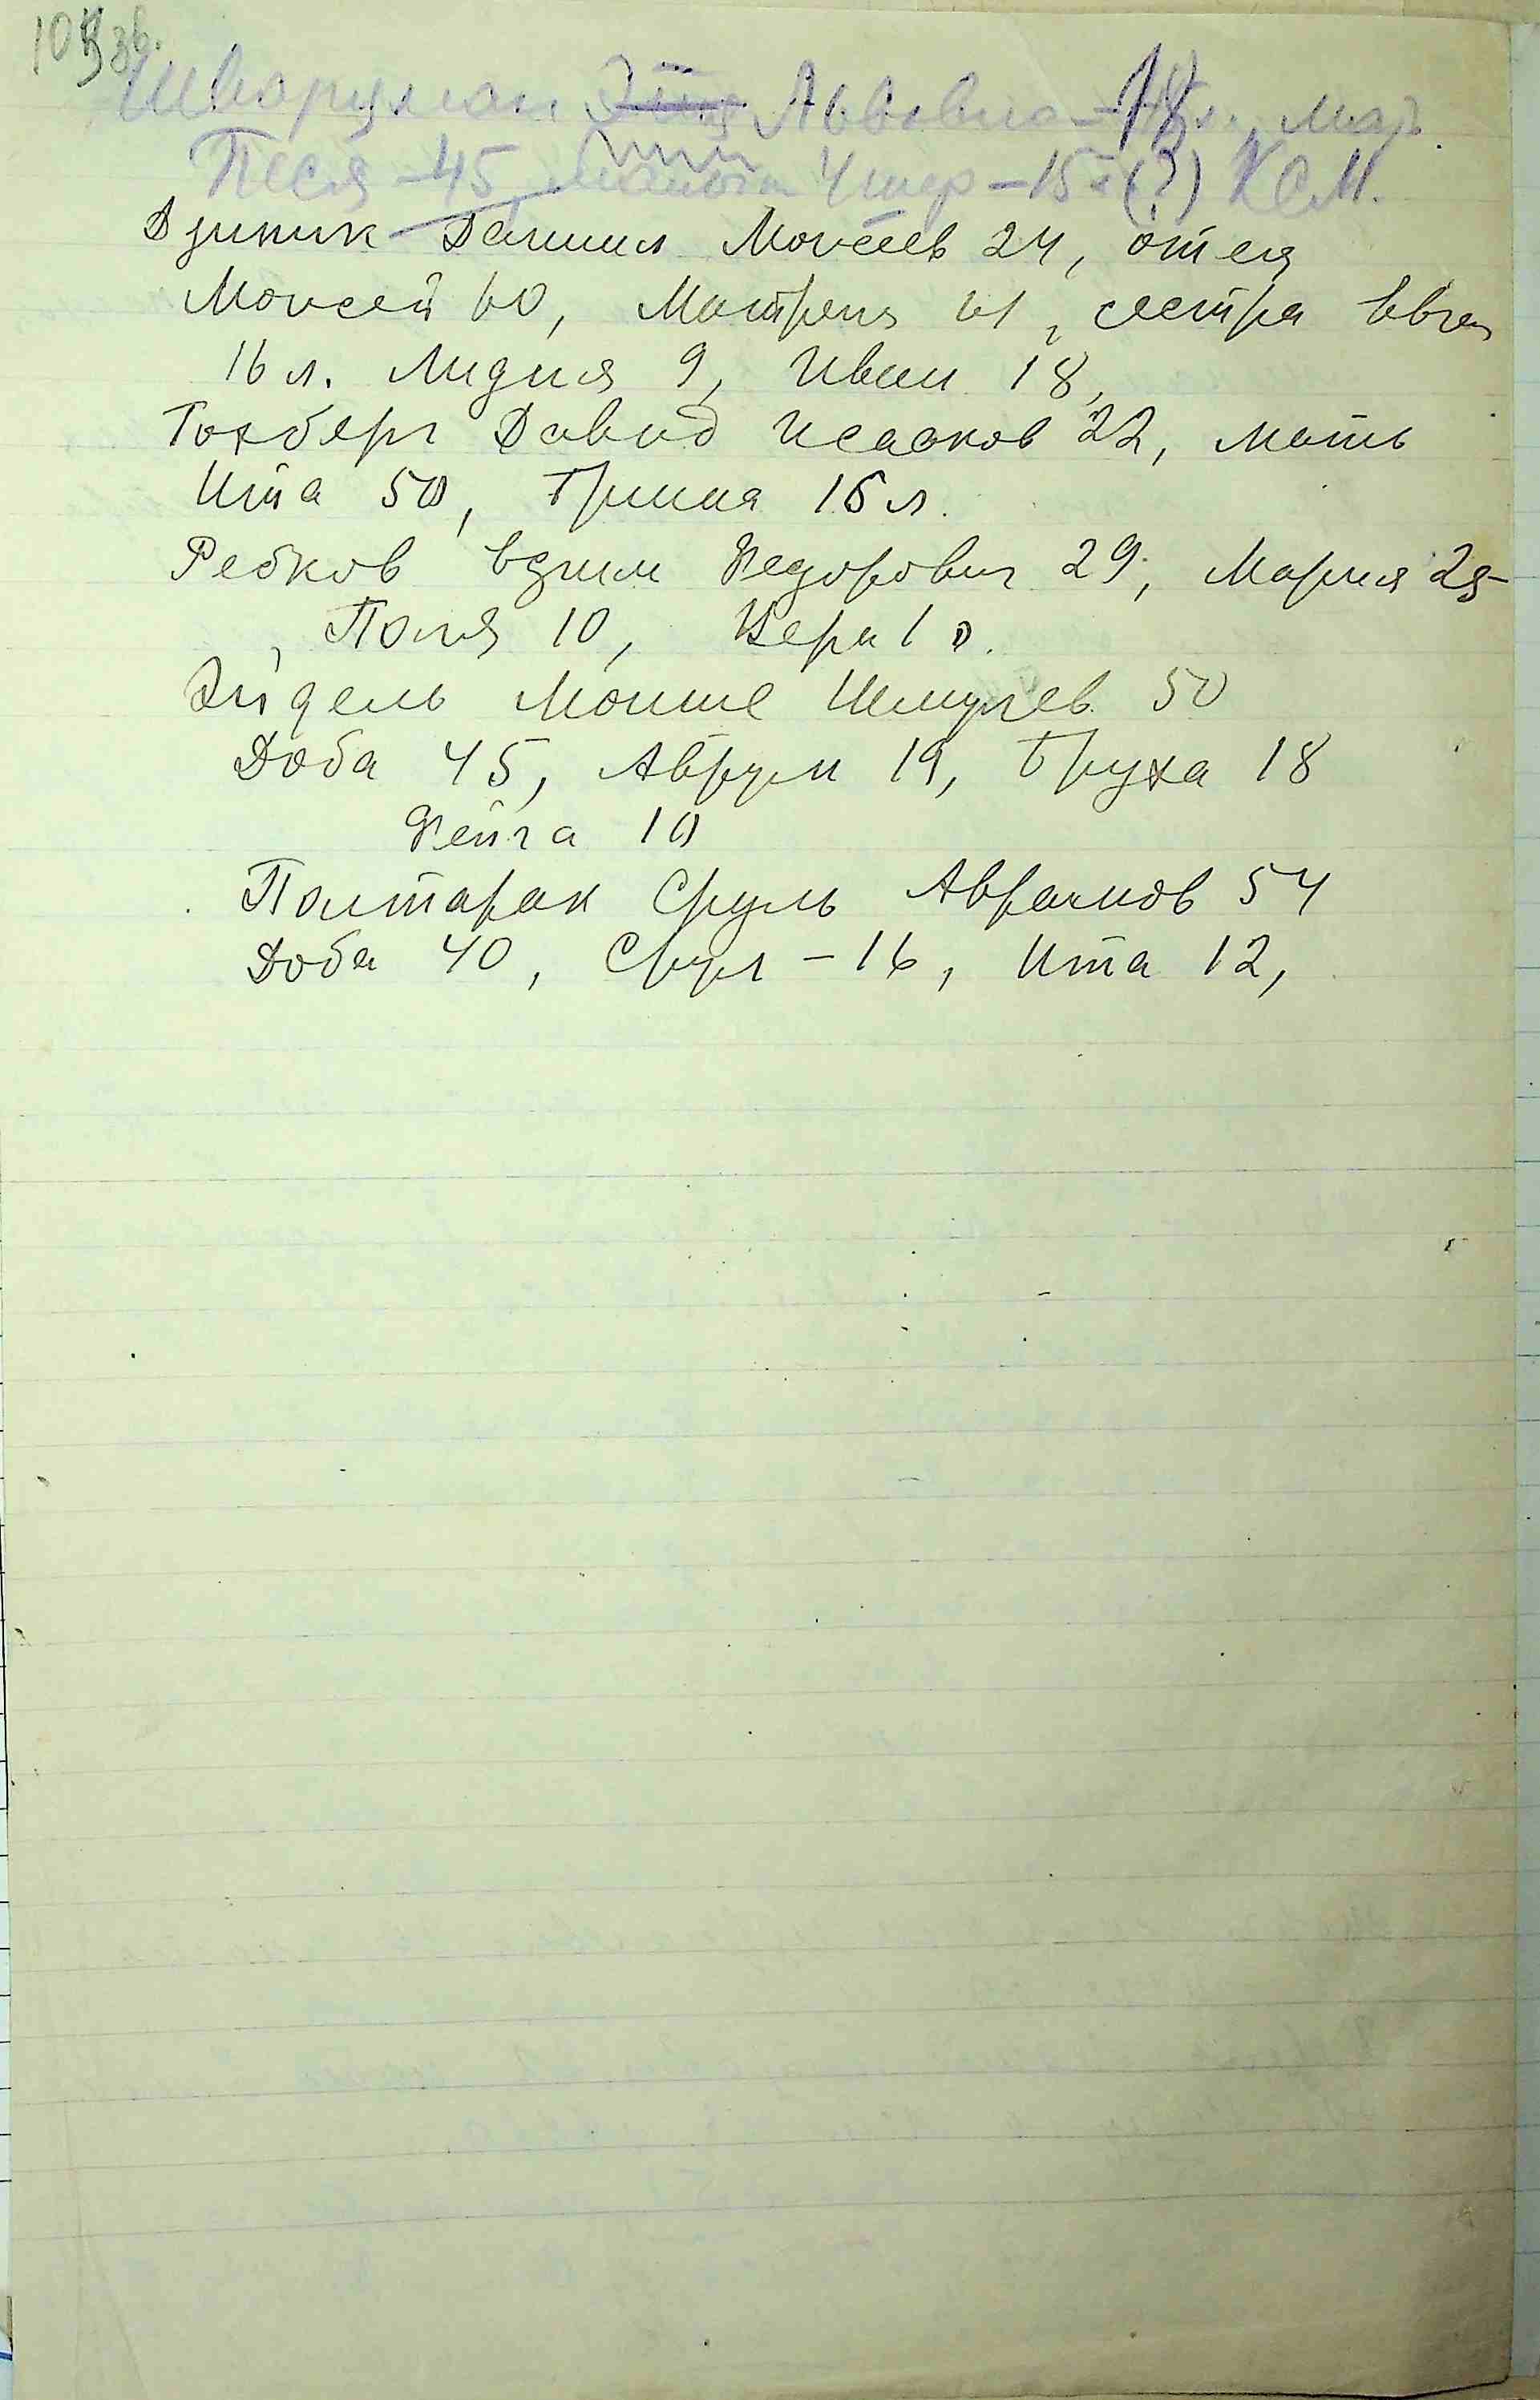 Шварцман Львовна - 18 л., мать
Песя - 45, Ушер - 15 л (?) КСМ.
Дзиник Даниил Моисеев 24, отец
Моисей 60, Матрена 61, сестра Евген
16 л. Лидия 9, Иван 18,
Гохберг Давид Исааков 22, мать
Ита 50, Гриша 16 л.
Редков Вадим Федорович 29, Мария 25
, Поля 10, Вера 1 
Эйдель Мойше Шмулев 50
Доба 45, Аврум 19, Бруха 18
Фейга 10
Полтарак Сруль Абрамов 54
Доба 40, Срул - 16, Ита 12,